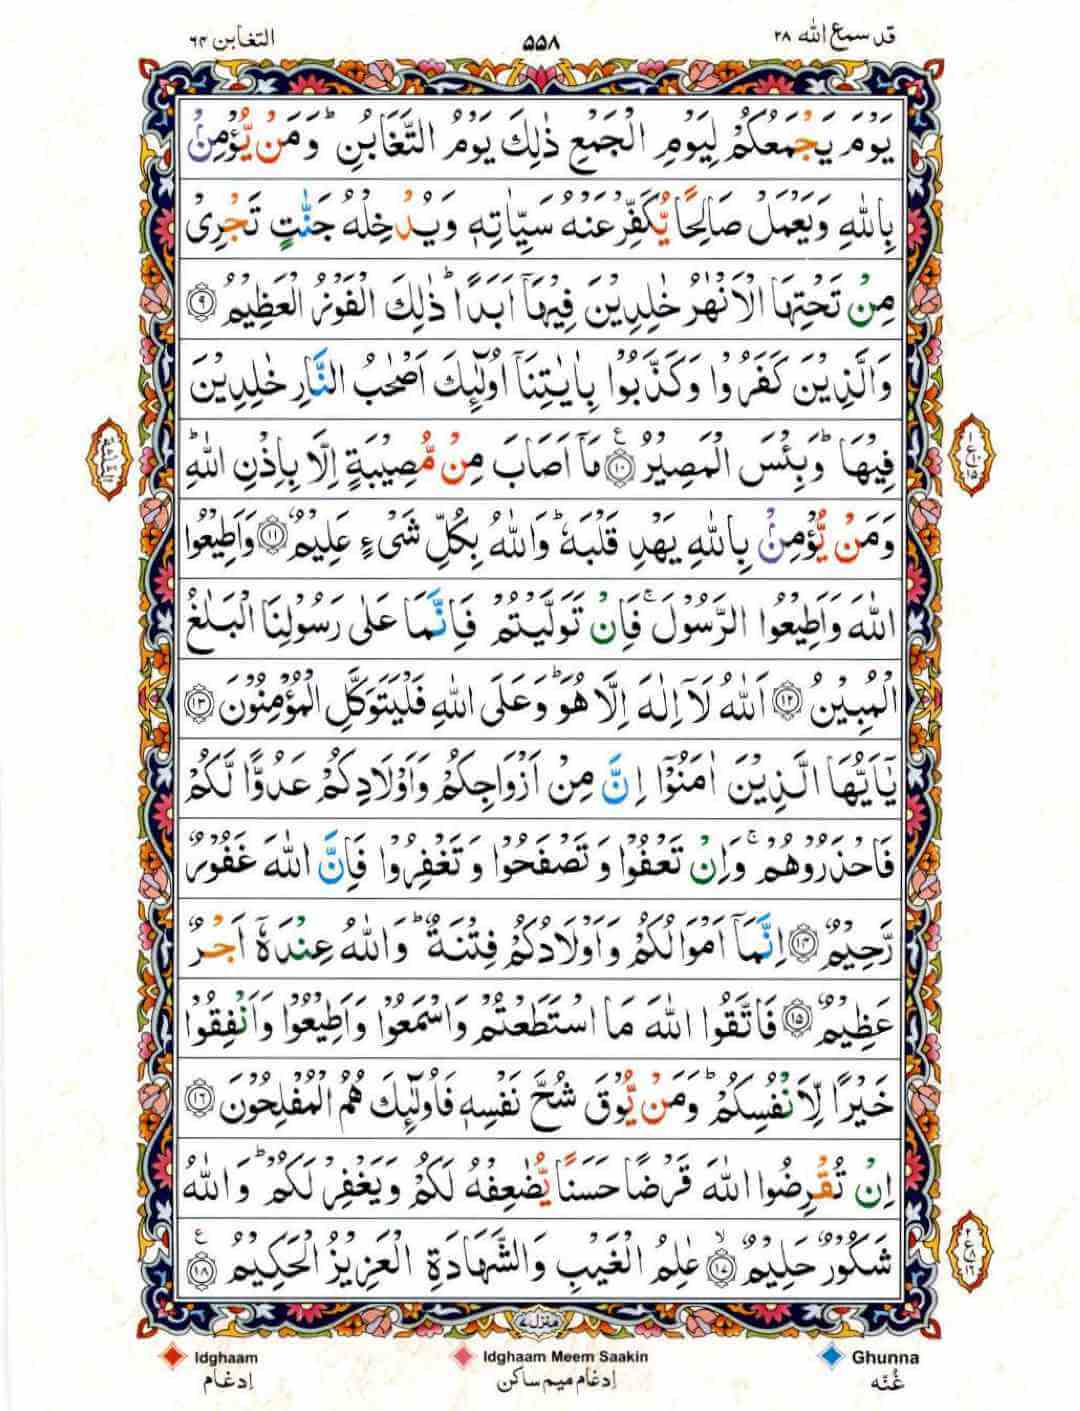 التغابن ٦٤
٥٥٨
قد سمع الله ٢٨
يَوْمَ يَجْمَعُكُمْ لِيَوْمِ الْجَمْعِ ذٰلِكَ يَوْمُ التَّغَابُنِ ؕ وَمَنْ يُّؤْمِنْۢ
بِاللّٰهِ وَيَعْمَلْ صَالِحًا يُّكَفِّرْ عَنْهُ سَيِّاٰتِهٖ وَيُدْخِلْهُ جَنّٰتٍ تَجْرِىْ
مِنْ تَحْتِهَا الْاَنْهٰرُ خٰلِدِيْنَ فِيْهَاۤ اَبَدًا ؕ ذٰلِكَ الْفَوْزُ الْعَظِيْمُ ۝٩
وَالَّذِيْنَ كَفَرُوْا وَكَذَّبُوْا بِاٰيٰتِنَاۤ اُولٰٓئِكَ اَصْحٰبُ النَّارِ خٰلِدِيْنَ
فِيْهَا ؕ وَبِئْسَ الْمَصِيْرُ ۝١٠ ع مَاۤ اَصَابَ مِنْ مُّصِيْبَةٍ اِلَّا بِاِذْنِ اللّٰهِ ؕ
وَمَنْ يُّؤْمِنْۢ بِاللّٰهِ يَهْدِ قَلْبَهٗ ؕ وَاللّٰهُ بِكُلِّ شَىْءٍ عَلِيْمٌ ۝١١ وَاَطِيْعُوا
اللّٰهَ وَاَطِيْعُوا الرَّسُوْلَ ۚ فَاِنْ تَوَلَّيْتُمْ فَاِنَّمَا عَلٰى رَسُوْلِنَا الْبَلٰغُ
الْمُبِيْنُ ۝١٢ اَللّٰهُ لَاۤ اِلٰهَ اِلَّا هُوَ ؕ وَعَلَى اللّٰهِ فَلْيَتَوَكَّلِ الْمُؤْمِنُوْنَ ۝١٣
يٰۤاَيُّهَا الَّذِيْنَ اٰمَنُوْۤا اِنَّ مِنْ اَزْوَاجِكُمْ وَاَوْلَادِكُمْ عَدُوًّا لَّكُمْ
فَاحْذَرُوْهُمْ ۚ وَاِنْ تَعْفُوْا وَتَصْفَحُوْا وَتَغْفِرُوْا فَاِنَّ اللّٰهَ غَفُوْرٌ
رَّحِيْمٌ ۝١٤ اِنَّمَاۤ اَمْوَالُكُمْ وَاَوْلَادُكُمْ فِتْنَةٌ ؕ وَاللّٰهُ عِنْدَهٗۤ اَجْرٌ
عَظِيْمٌ ۝١٥ فَاتَّقُوا اللّٰهَ مَا اسْتَطَعْتُمْ وَاسْمَعُوْا وَاَطِيْعُوْا وَاَنْفِقُوْا
خَيْرًا لِّاَنْفُسِكُمْ ؕ وَمَنْ يُّوْقَ شُحَّ نَفْسِهٖ فَاُولٰٓئِكَ هُمُ الْمُفْلِحُوْنَ ۝١٦
اِنْ تُقْرِضُوا اللّٰهَ قَرْضًا حَسَنًا يُّضٰعِفْهُ لَكُمْ وَيَغْفِرْ لَكُمْ ؕ وَاللّٰهُ
شَكُوْرٌ حَلِيْمٌ ۙ۝١٧ عٰلِمُ الْغَيْبِ وَالشَّهَادَةِ الْعَزِيْزُ الْحَكِيْمُ ۝١٨ ع
منزل ٧
Idghaam Idghaam Meem Saakin Ghunna
ادغام ادغام میم ساکن غُنّه